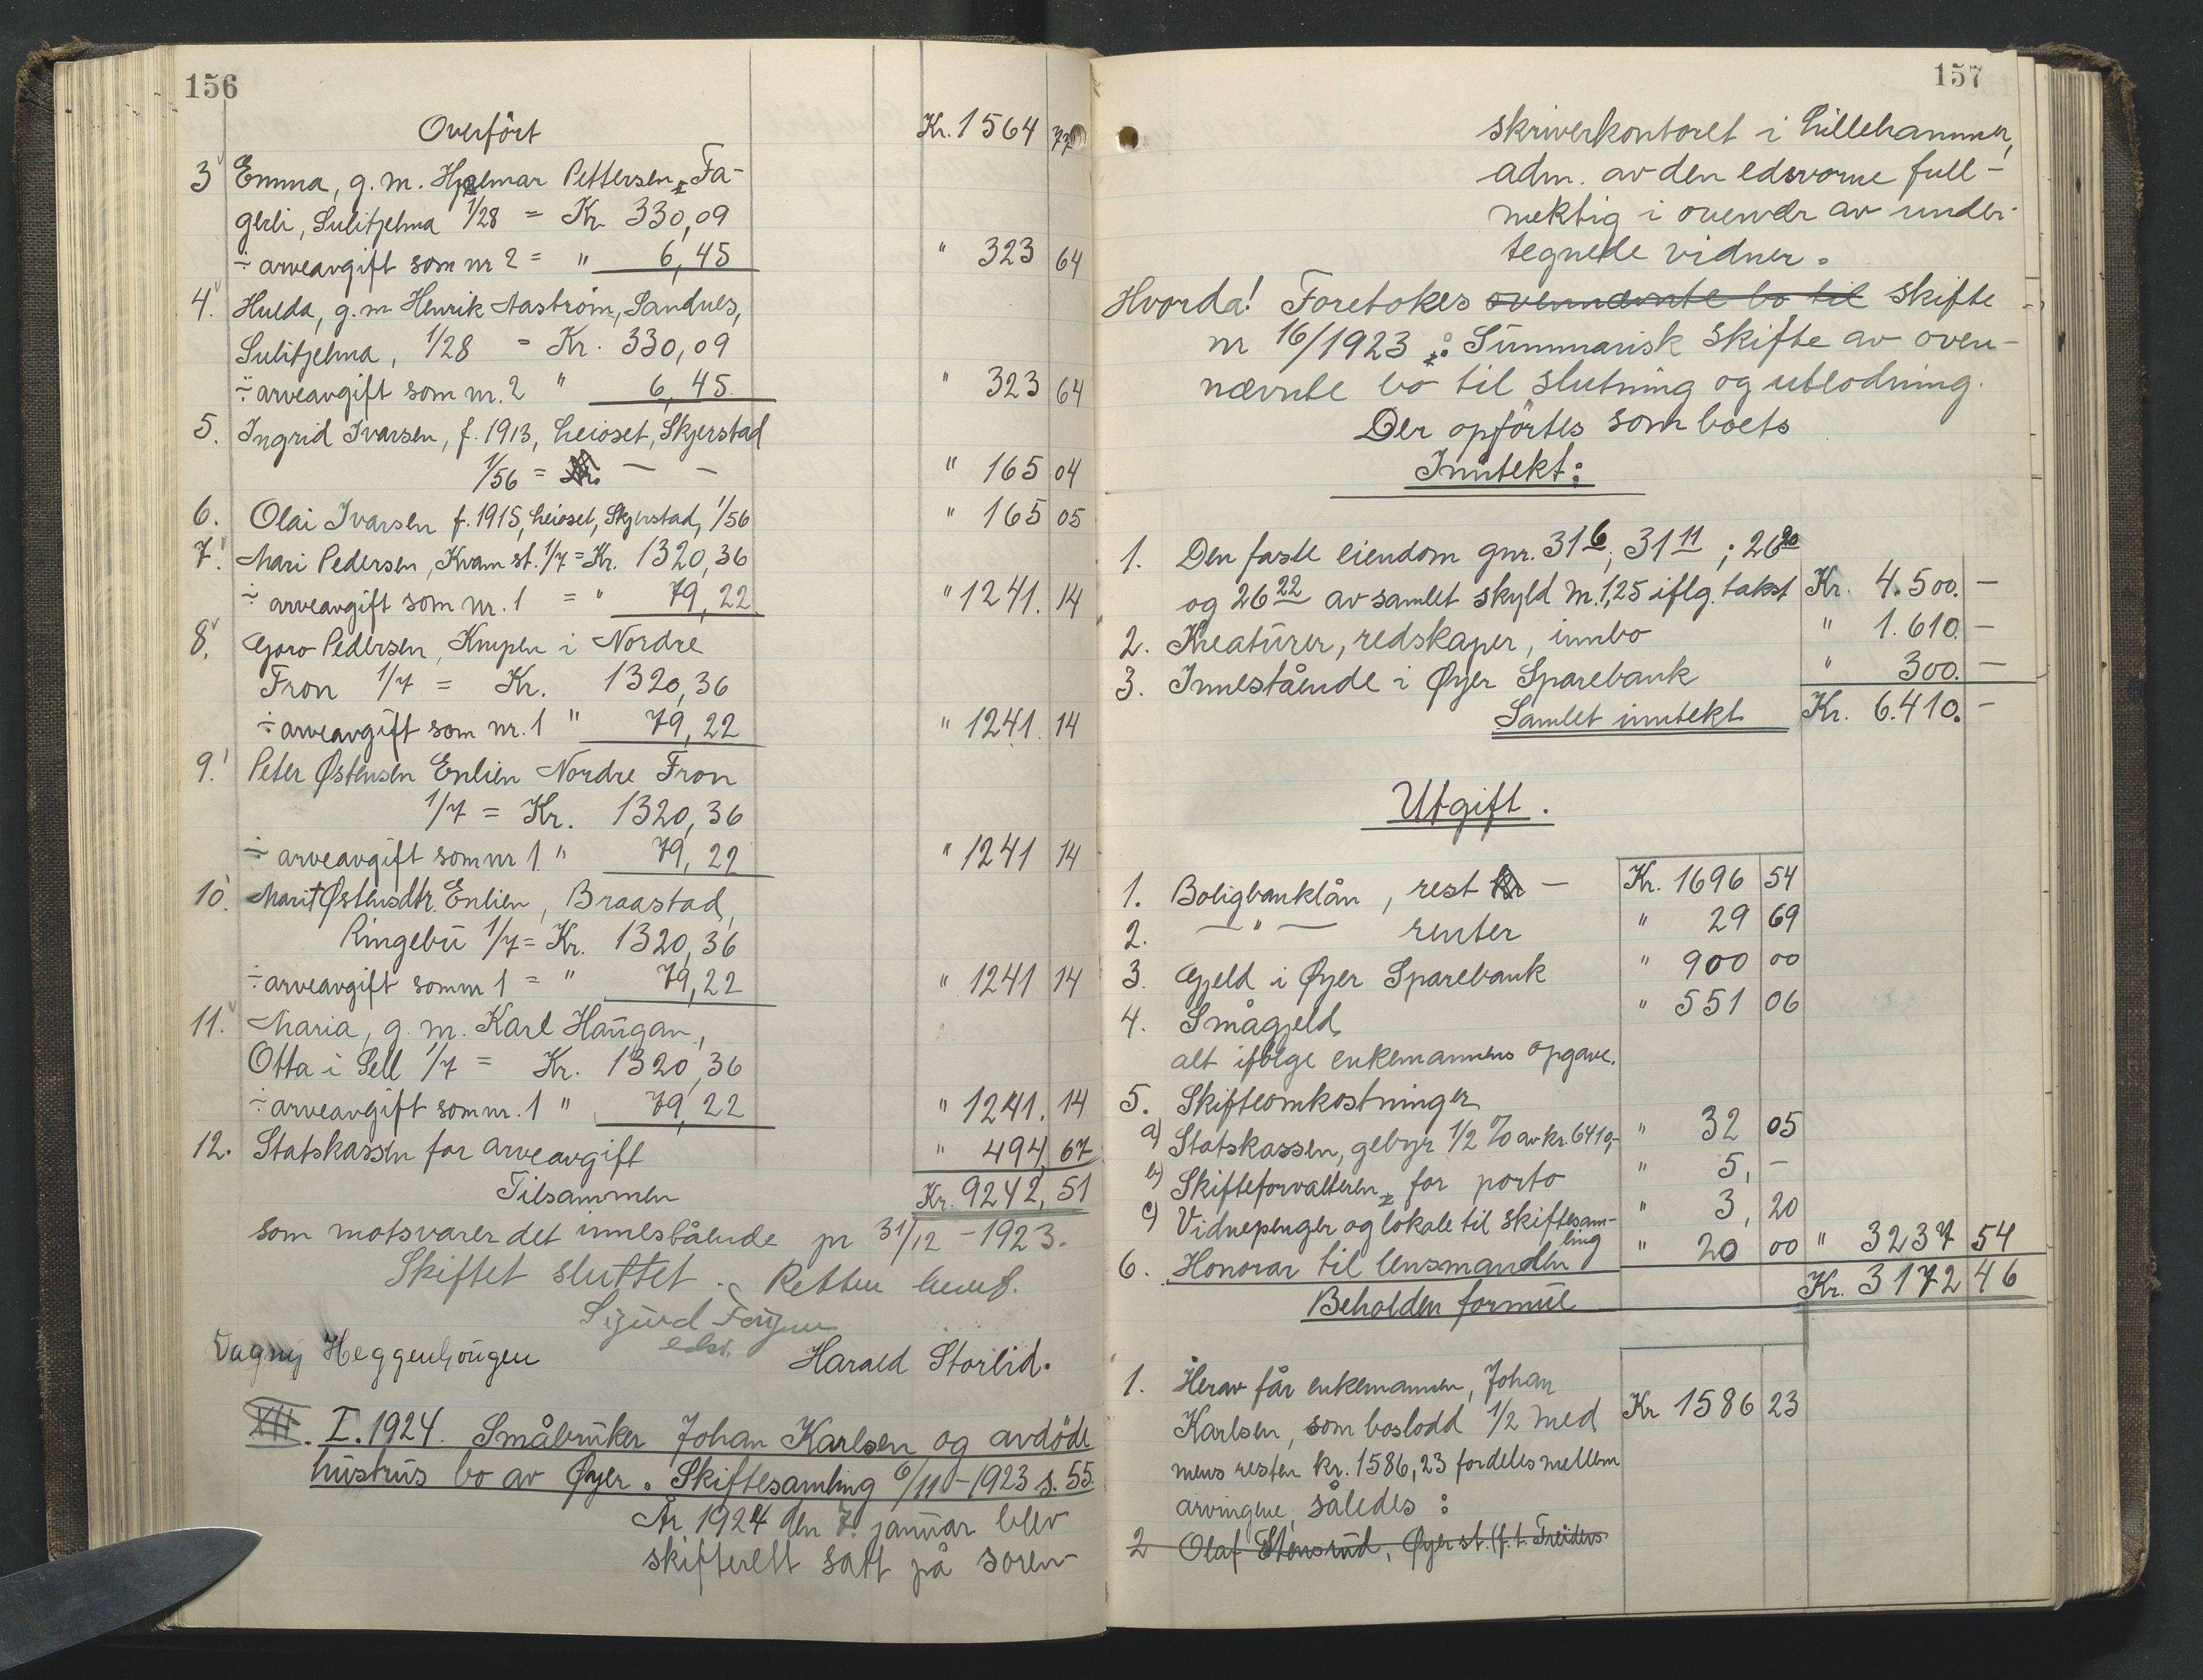 156
Overført Kr. 1564 77
3 Emma, g. m. Hjalmar Pettersen, Fa-
gerli, Sulitjelma 1/28 = Kr. 330,09
÷ arveavgift som nr 2 = " 6,45 " 323 64
4. Hulda, g. m. Henrik Aastrøm, Sandnes,
Sulitjelma, 1/28 = Kr. 330,09
÷ arveavgift som nr. 2 " 6,45. " 323 64
5. Ingrid Ivarsen, f. 1913, Leioset, Skjerstad
1/56 = Kr. — — " 165 04
6. Olai Ivarsen f. 1915, Leioset, Skjerstad, 1/56 " 165 05
7. Mari Pedersen, Kvam st. 1/7 = Kr. 1320,36
÷ arveavgift som nr. 1 = " 79,22 " 1241. 14
8. Goro Pedersen, Knupen i Nordre
Fron 1/7 = Kr. 1320,36
÷ arveavgift som nr. 1 " 79,22 " 1241. 14
9. Peter Østensen Enlien Nordre Fron
1/7 = Kr. 1320,36
÷ arveavgift som nr 1 " 79,22 " 1241 14
10. Marit Østensdtr. Enlien, Braastad,
Ringebu 1/7 = Kr. 1320,36
÷ arveavgift som nr 1 = " 79,22 " 1241 14
11. Maria, g. m. Karl Haugan,
Otta i Sell 1/7 = Kr. 1320,36
÷ arveavgift som nr. 1 " 79,22 " 1241. 14
12. Statskassen for arveavgift " 494 67
Tilsammen Kr. 9242,51
som motsvarer det innestående pr 31/12 - 1923.
Skiftet sluttet. Retten hevet.
Sigurd
eds.
Dagny Heggenhougen Harald Storlid.
XIII. I. 1924. Småbruker Johan Karlsen og avdøde
hustrus bo av Øyer. Skiftesamling 6/11 - 1923 s. 55.
År 1924 den 7. januar blev
skifterett satt på soren-
157
skriverkontoret i Lillehammer,
adm. av den edsvorne full-
mektig i overvær av under-
tegnede vidner.
Hvorda! Foretokes ovennævnte bo til skifte
nr 16/1923 : Summarisk skifte av oven-
nævnte bo til slutning og utlodning.
Der opførtes som boets
Inntekt:
1. Den faste eiendom gnr. 31 6, 31 11; 26 20
og 26 22 av samlet skyld m. 1,25 iflg. takst Kr. 4.500. —
2. Kreaturer, redskaper, innbo " 1.610. —
3. Innestående i Øyer Sparebank " 300. —
Samlet inntekt Kr. 6.410. —
Utgift.
1. Boligbanklån, rest kr — Kr. 1696 54
2. — " — renter " 29 69
3. Gjeld i Øyer Sparebank " 900 00
4. Smågjeld " 551 06
alt ifølge enkemannens opgave.
5. Skifteomkostninger
a) Statskassen, gebyr 1/2 % av kr. 6410,- " 32 05
b) Skifteforvalteren, for porto " 5, —
c) Vidnepenger og lokale til skiftesam-
ling " 3, 20
6. Honorar til lensmanden " 20 00 " 3237 54
Beholden formue Kr. 3172 46
1. Herav får enkemannen, Johan
Karlsen, som boslodd 1/2 med Kr 1586 23
mens resten kr. 1586,23 fordeles mellem
arvingene, således:
2 Olaf Stensrud, Øyer st. (f. t. Treiders